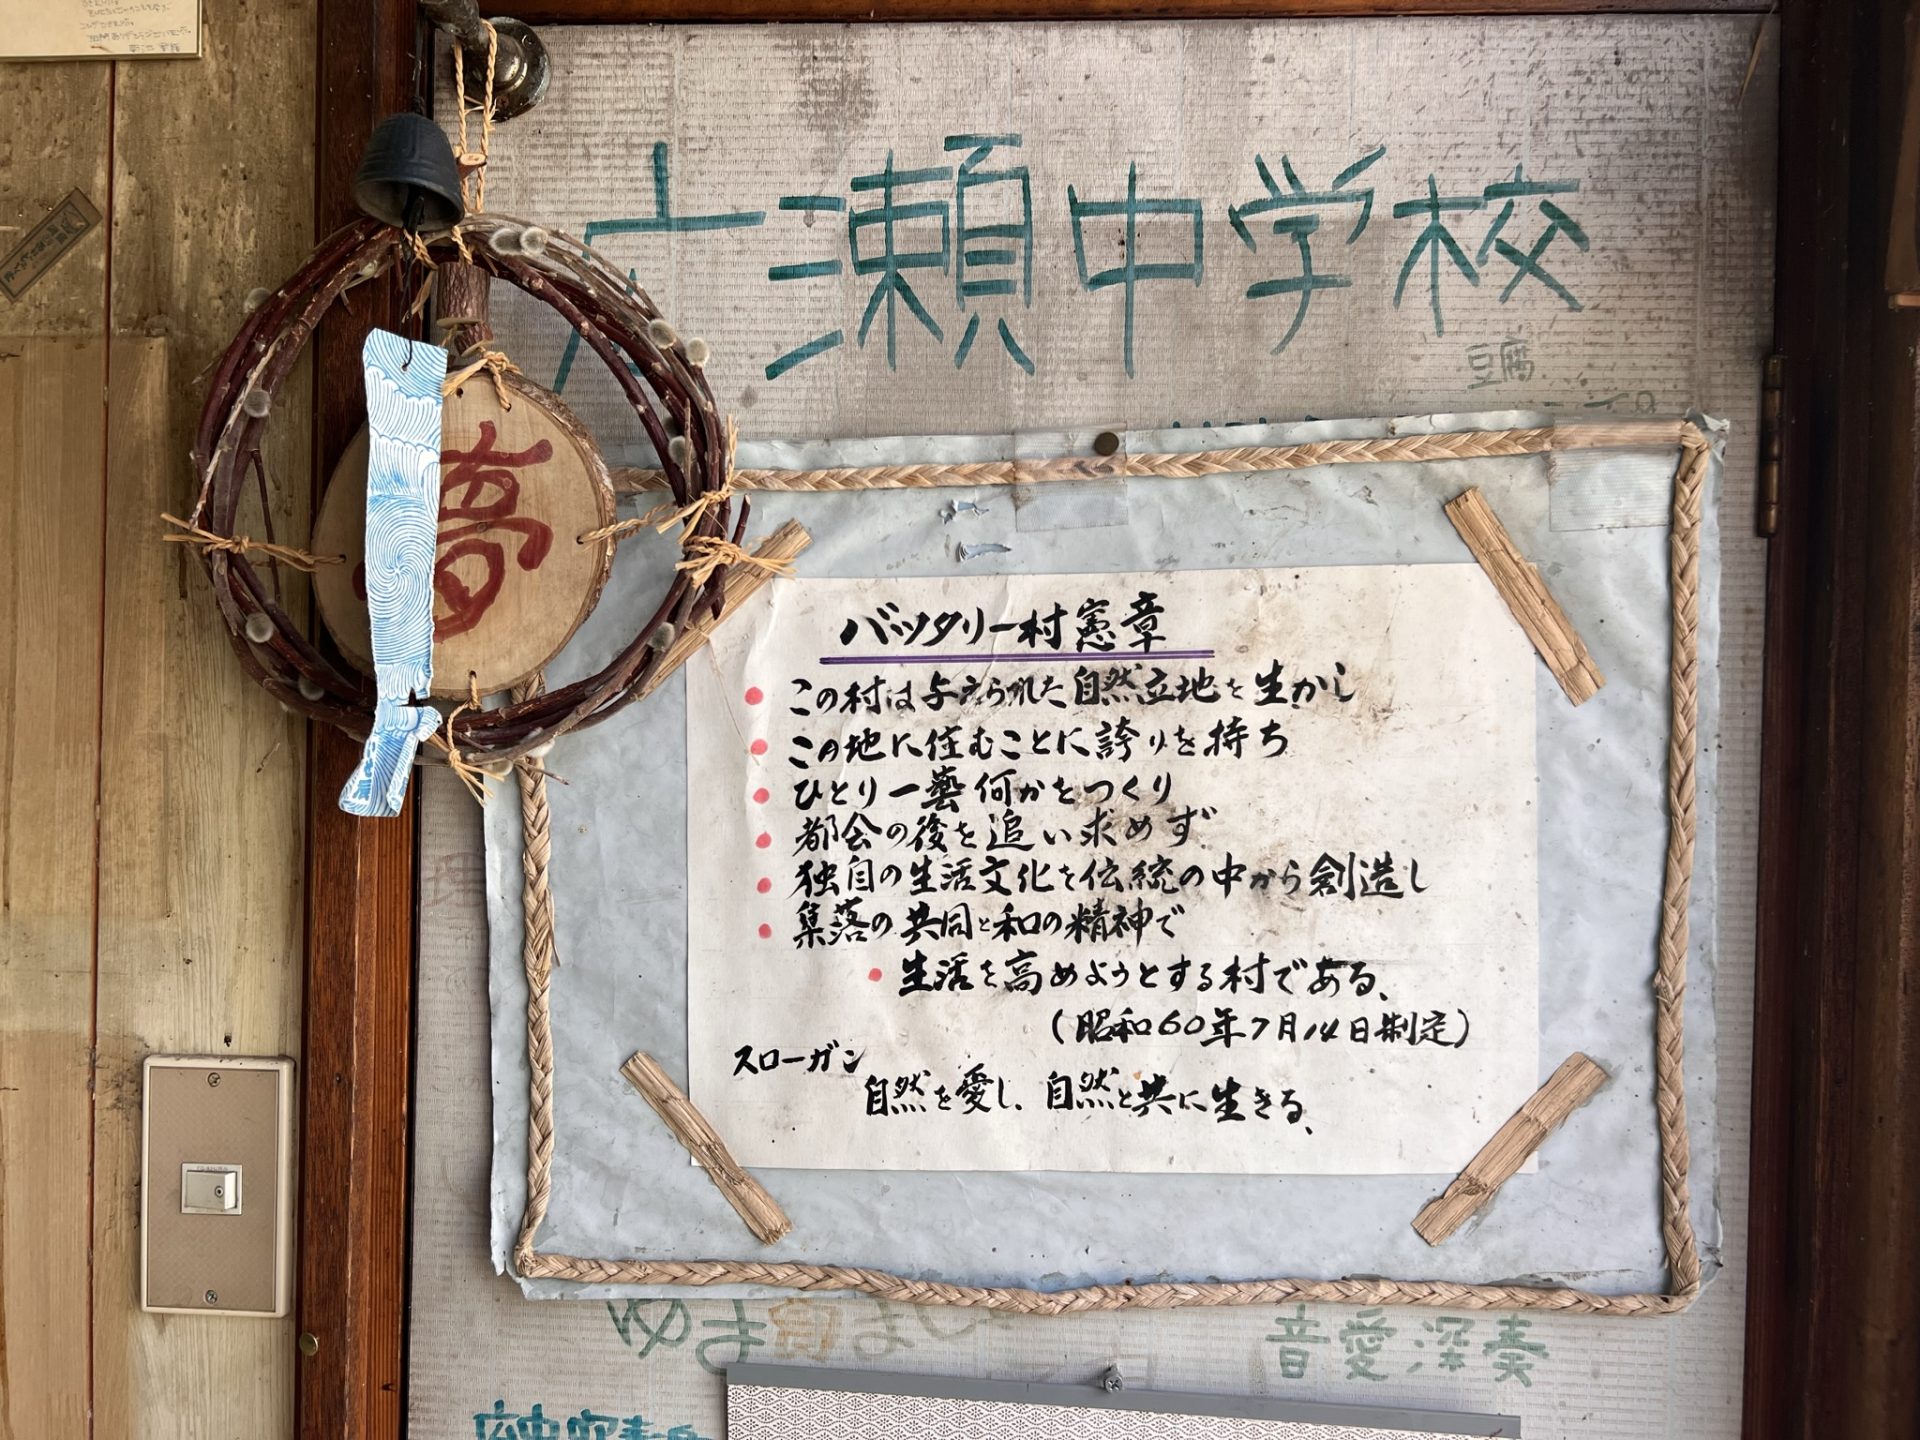 広瀬中学校
豆腐
夢
バッタリー村憲章
この村は与えられた自然立地を生かし
この地に住むことに誇りを持ち
ひとり一藝何かをつくり
都会の後を追い求めず
独自の生活文化を伝統の中から創造し
集落の共同と和の精神で
生活を高めようとする村である、
(昭和60年7月14日制定)
スローガン
自然を愛し、自然と共に生きる、
音愛深奏